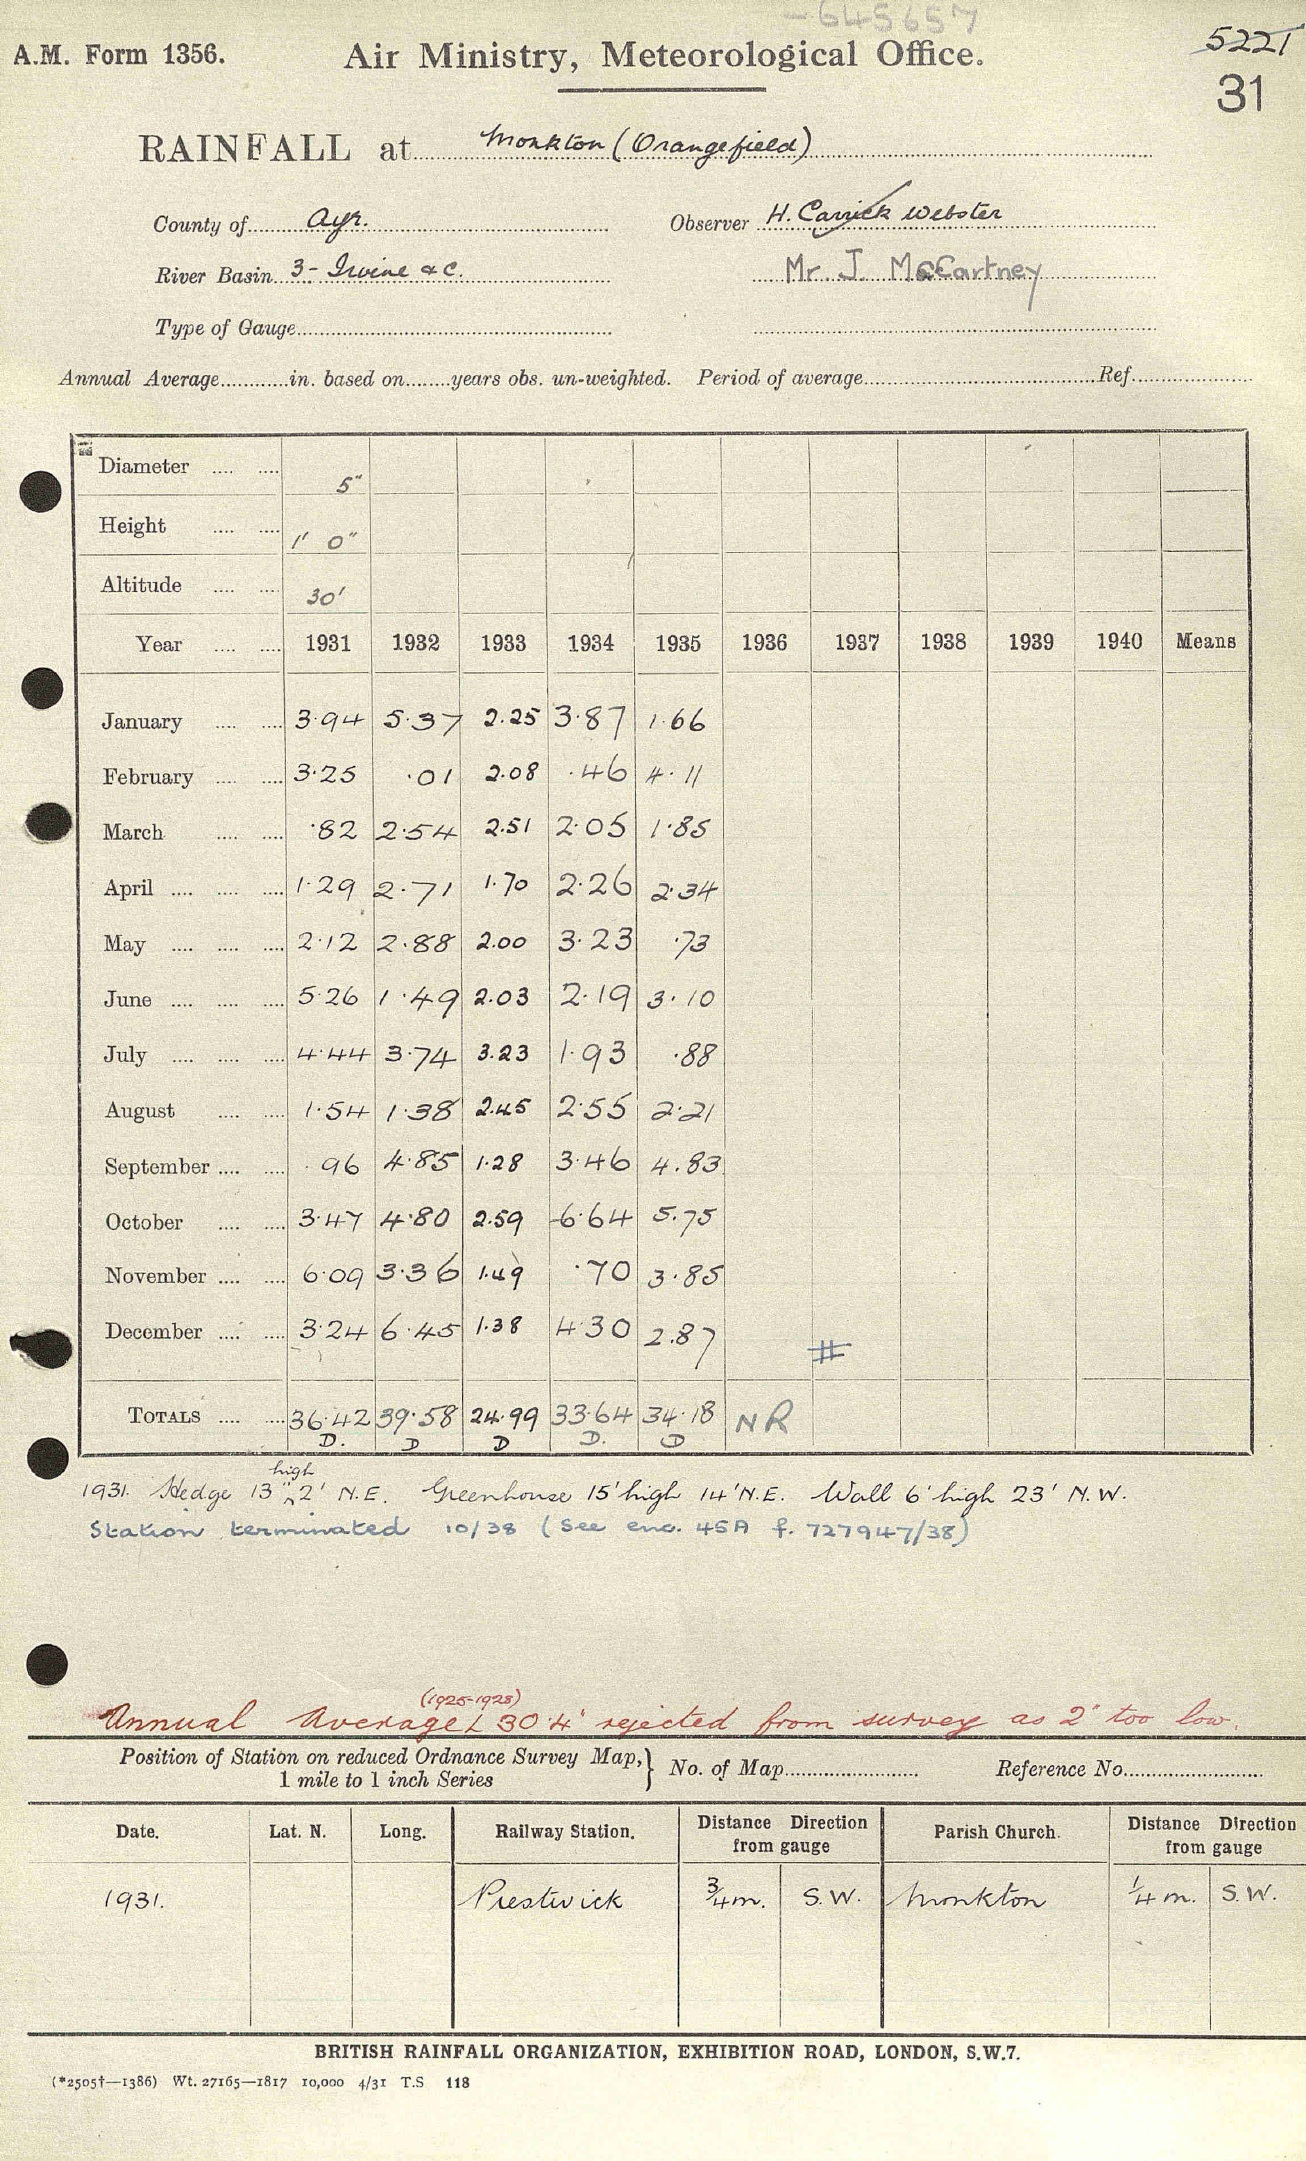 -645657
A.M. Form 1356. Air Ministry, Meteorological Office. 5221
31
RAINFALL at Monkton (Orangefield)
County of Ayr. Observer H. Carrick Webster
River Basin 3- Irvine &c. Mr. J. McCartney
Type of Gauge
Annual Average in. based on years obs. un-weighted. Period of average Ref.
Diameter 5"
Height 1' 0"
Altitude 30'
Year 1931 1932 1933 1934 1935 1936 1937 1938 1939 1940 Means
January 3·94 5·37 2.25 3·87 1·66
February 3·25 ·01 2·08 ·46 4·11
March ·82 2·54 2.51 2·05 1·85
April 1·29 2·71 1·70 2·26 2·34
May 2·12 2·88 2.00 3·23 ·73
June 5·26 1·49 2.03 2·19 3·10
July 4·44 3·74 3.23 1·93 ·88
August 1·54 1·38 2.45 2·55 2·21
September ·96 4·85 1·28 3·46 4.83
October 3·47 4·80 2.59 6·64 5.75
November 6·09 3·36 1.49 ·70 3·85
December 3·24 6·45 1·38 4·30 2.87
#
TOTALS 36·42 39·58 24.99 33·64 34·18 NR
D. D D D. D
high
1931. Hedge 13" 2' N.E. Greenhouse 15' high 14' N.E. Wall 6' high 23' N.W.
Station terminated 10/38 (See enc. 45A f. 727947/38)
(1925-1928)
Annual Average 30·4" rejected from survey as 2" too low.
Position of Station on reduced Ordnance Survey Map, } No. of Map Reference No.
1 mile to 1 inch Series
Date. Lat. N. Long. Railway Station. Distance from gauge Direction Parish Church. Distance from gauge Direction
1931. Prestwick 3/4 m. S.W. Monkton 1/4 m. S.W.
BRITISH RAINFALL ORGANIZATION, EXHIBITION ROAD, LONDON, S.W.7.
(*2505†—1386) Wt. 27165—1817 10,000 4/31 T.S 118